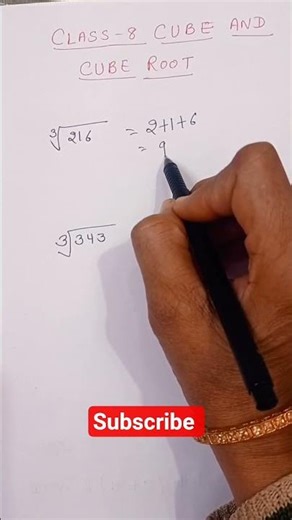 CLASS-8 CUBE AND
CUBE ROOT
∛216 = 2+1+6
= 9
∛343
Subscribe